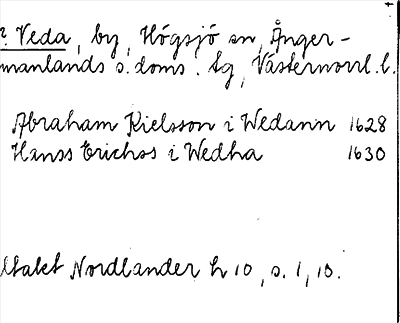 Veda, by, Högsjö sn, Ånger-
manlands s. doms. tg, Västernorrl. l.
Abraham Kielsson i Wedann 1628
Hanss Erichss i Wedha 1630
Nordlander h 10, s. 1, 10.